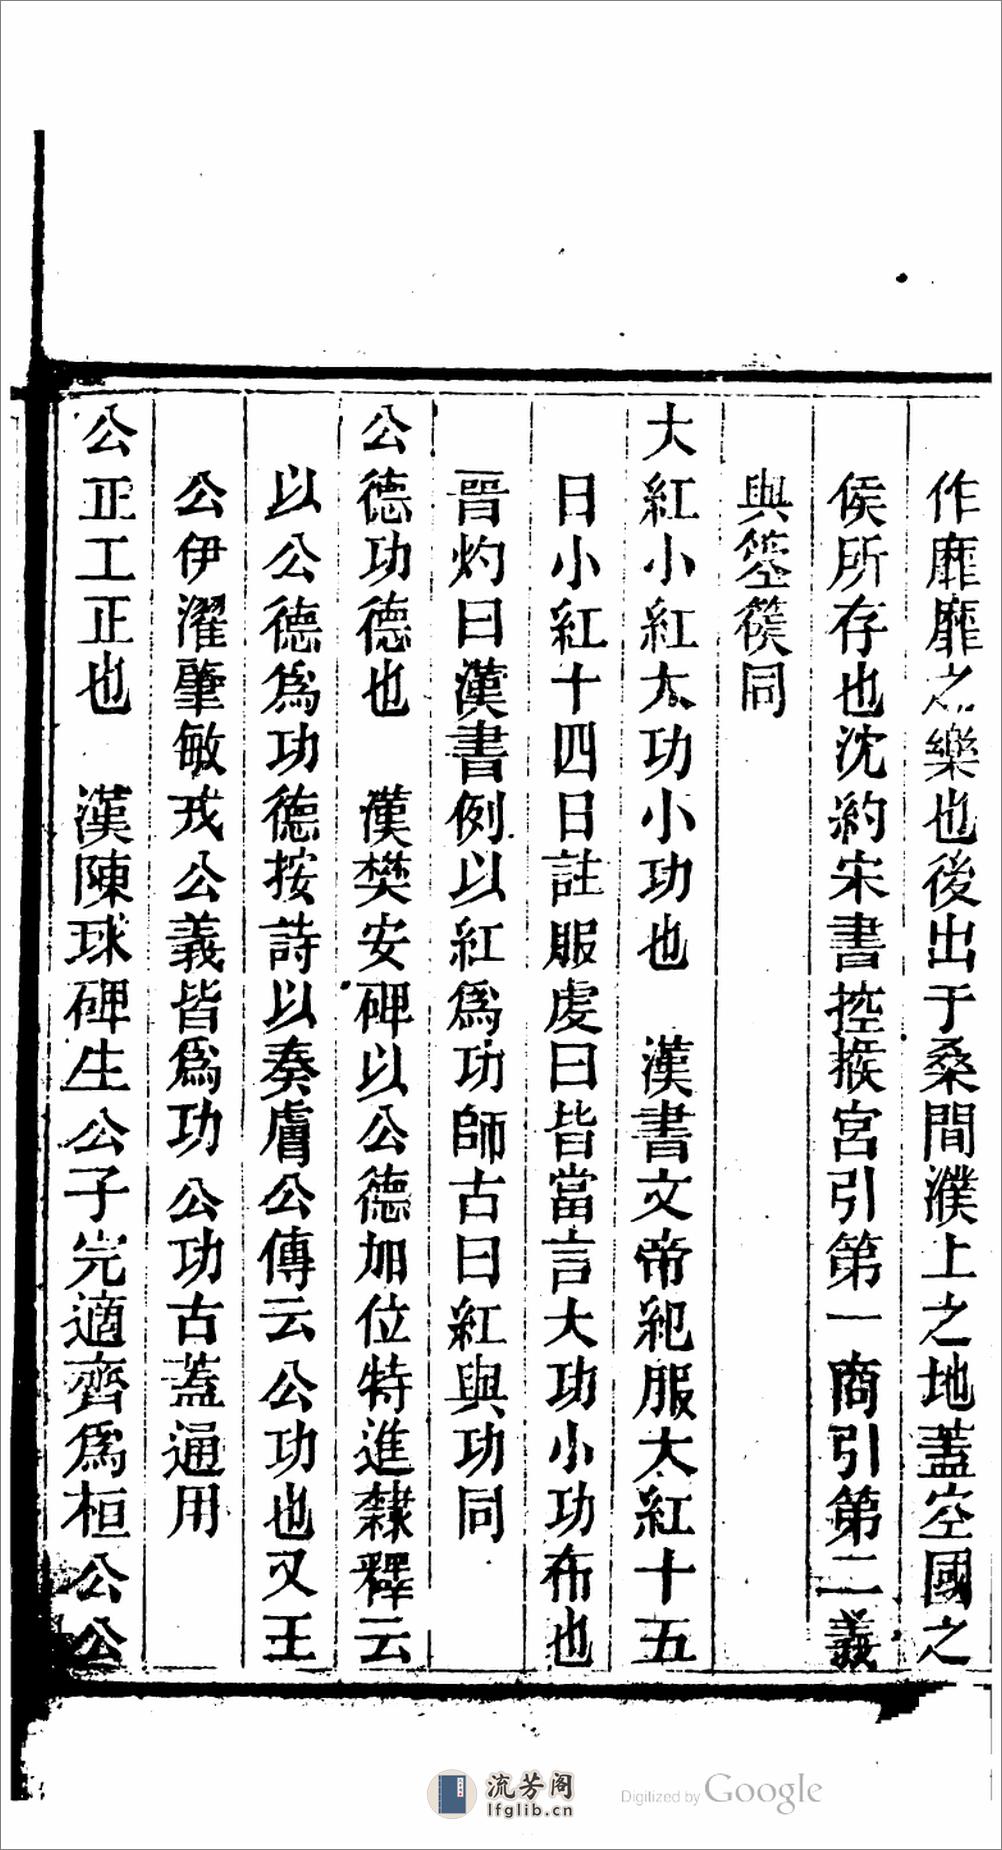 作靡靡之樂也後出于桑間濮上之地蓋空國之
侯所存也沈約宋書控㨭宮引第一商引第二義
與箜篌同
大紅小紅大功小功也　漢書文帝紀服大紅十五
日小紅十四日註服虔曰皆當言大功小功布也
晉灼曰漢書例以紅爲功師古曰紅與功同
公德功德也　漢樊安碑以公德加位特進隸釋云
以公德爲功德按詩以奏膚公傳云公功也又王
公伊濯肇敏戎公義皆爲功公功古蓋通用
公正工正也　漢陳球碑生公子完適齊爲桓公公
流芳阁
lfglib.cn
Digitized by Google